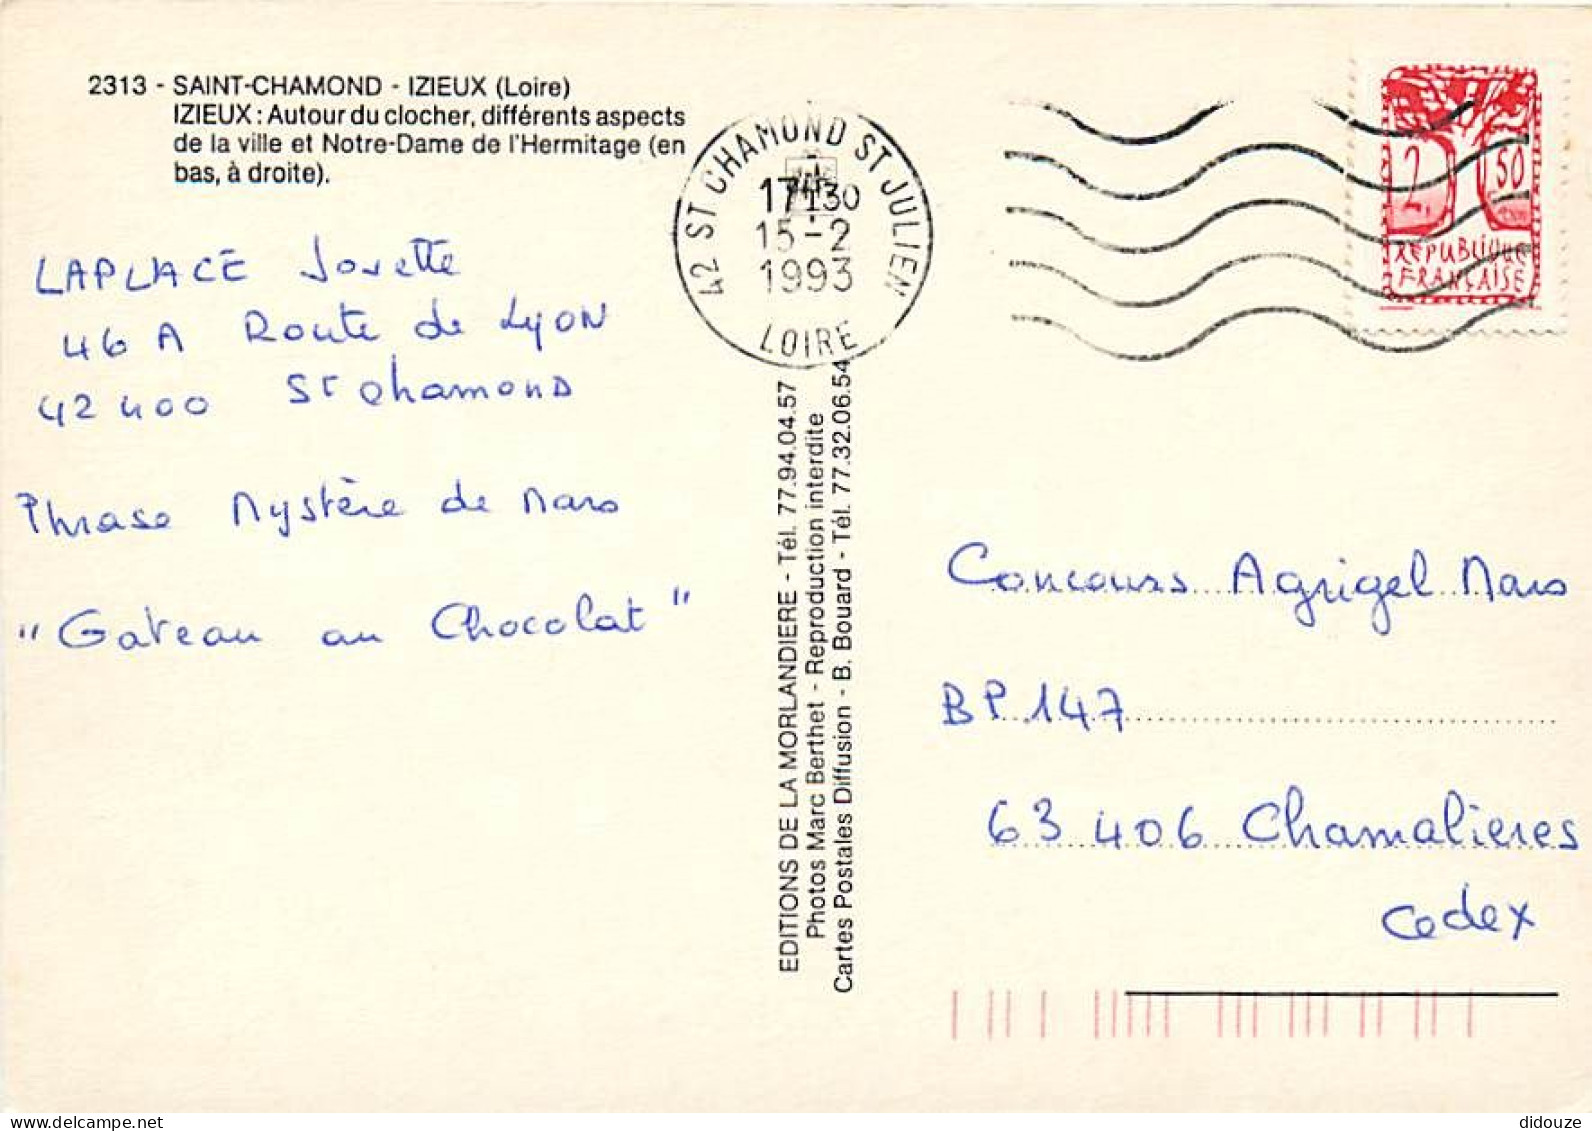 2313 - SAINT-CHAMOND - IZIEUX (Loire)
IZIEUX : Autour du clocher, différents aspects
de la ville et Notre-Dame de l'Hermitage (en
bas, à droite).
42 ST CHAMOND ST JULIEN
17H30
15-2
1993
LOIRE
2,50
REPUBLIQUE
FRANÇAISE
LAPLACE Josette
46 A Route de Lyon
42 400 St Chamond
Phrase Mystère de Mars
"Gateau au Chocolat"
EDITIONS DE LA MORLANDIERE - Tél. 77.94.04.57
Photos Marc Berthet - Reproduction interdite
Cartes Postales Diffusion - B. Bouard - Tél. 77.32.06.54
Concours Agrigel Mars
BP 147
63 406 Chamalieres
Cedex
delcampe.net
didouze